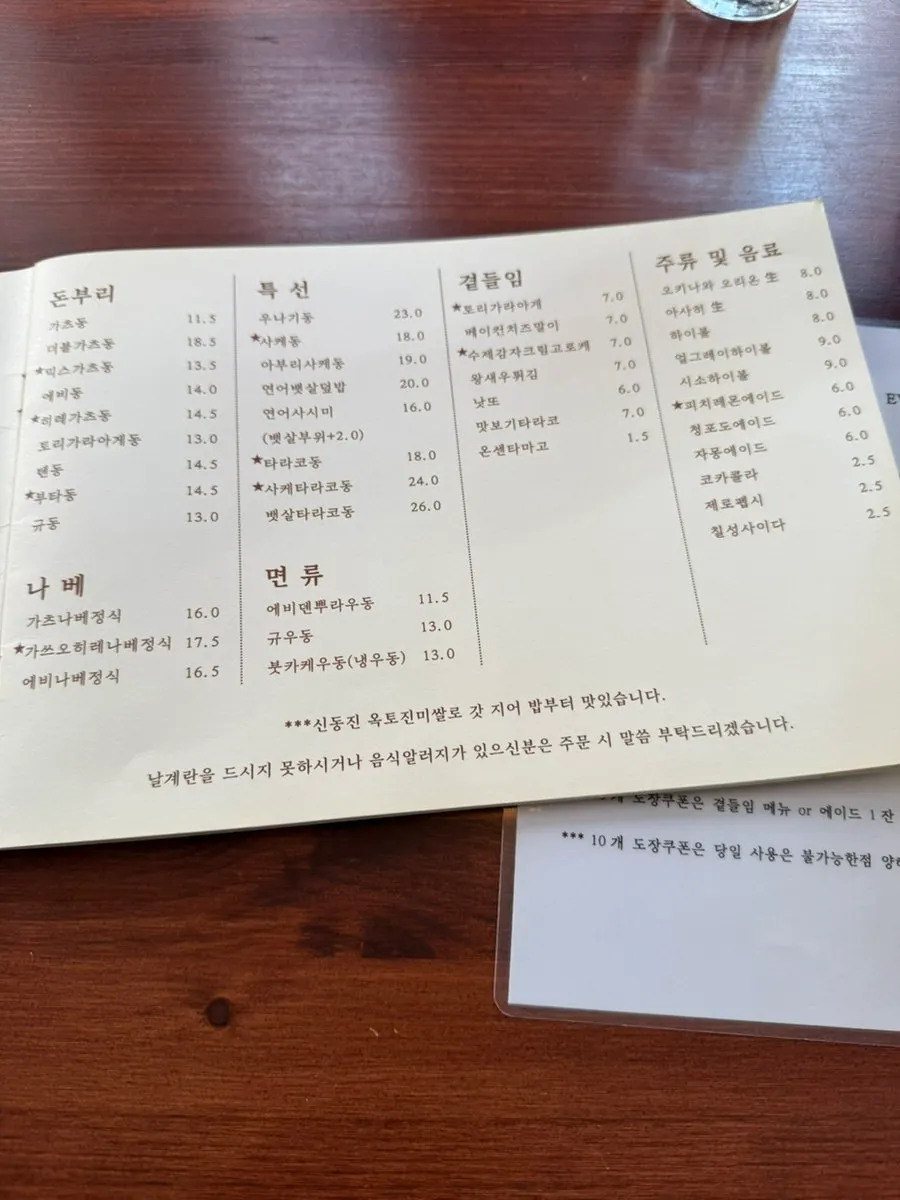 돈부리
가츠동 11.5
더블가츠동 18.5
★믹스가츠동 13.5
에비동 14.0
★히레가츠동 14.5
토리가라아게동 13.0
텐동 14.5
★부타동 14.5
규동 13.0
나베
가츠나베정식 16.0
★가쓰오히레나베정식 17.5
에비나베정식 16.5
특선
우나기동 23.0
★사케동 18.0
아부리사케동 19.0
연어뱃살덮밥 20.0
연어사시미 16.0
(뱃살부위+2.0)
★타라코동 18.0
★사케타라코동 24.0
뱃살타라코동 26.0
면류
에비덴뿌라우동 11.5
규우동 13.0
붓카케우동(냉우동) 13.0
곁들임
★토리가라아게 7.0
베이컨치즈말이 7.0
★수제감자크림고로케 7.0
왕새우튀김 7.0
낫또 6.0
맛보기타라코 7.0
온센타마고 1.5
주류 및 음료
오키나와 오리온 生 8.0
아사히 生 8.0
하이볼 8.0
얼그레이하이볼 9.0
시소하이볼 9.0
★피치레몬에이드 6.0
청포도에이드 6.0
자몽에이드 6.0
코카콜라 2.5
제로펩시 2.5
칠성사이다 2.5
***신동진 옥토진미쌀로 갓 지어 밥부터 맛있습니다.
날계란을 드시지 못하시거나 음식알러지가 있으신분은 주문 시 말씀 부탁드리겠습니다.
개 도장쿠폰은 곁들임 메뉴 or 에이드 1잔
*** 10개 도장쿠폰은 당일 사용은 불가능한점